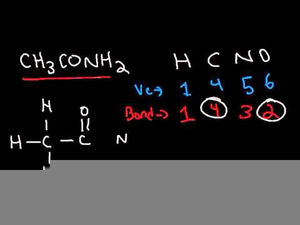 CH3CONH2
H C N O
Ve→ 1 4 5 6
Bond→ 1 4 3 2
H O
H-C-C N